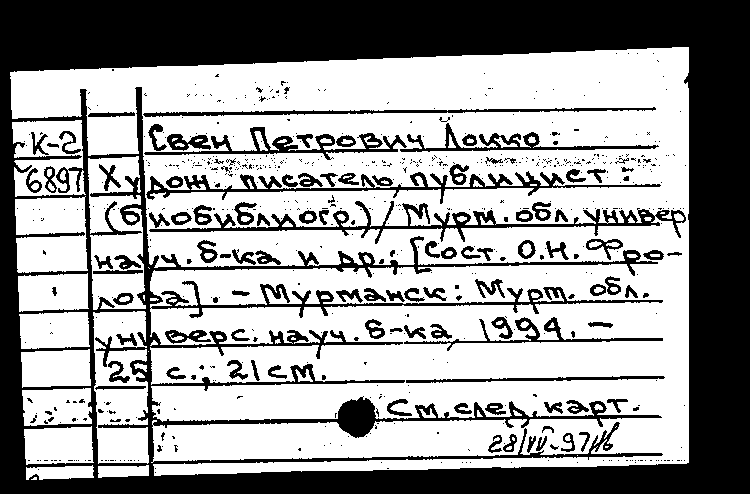 К-2 Свен Петрович Локко:
6897 Худож., писатель, публицист:
(биобиблиогр.) / Мурм. обл. универ
науч. б-ка и др.; [Сост. О.Н. Фро-
лова]. - Мурманск: Мурм. обл.
универс. науч. б-ка, 1994. -
25 с.; 21 см.
См. след. карт.
28/VII-97